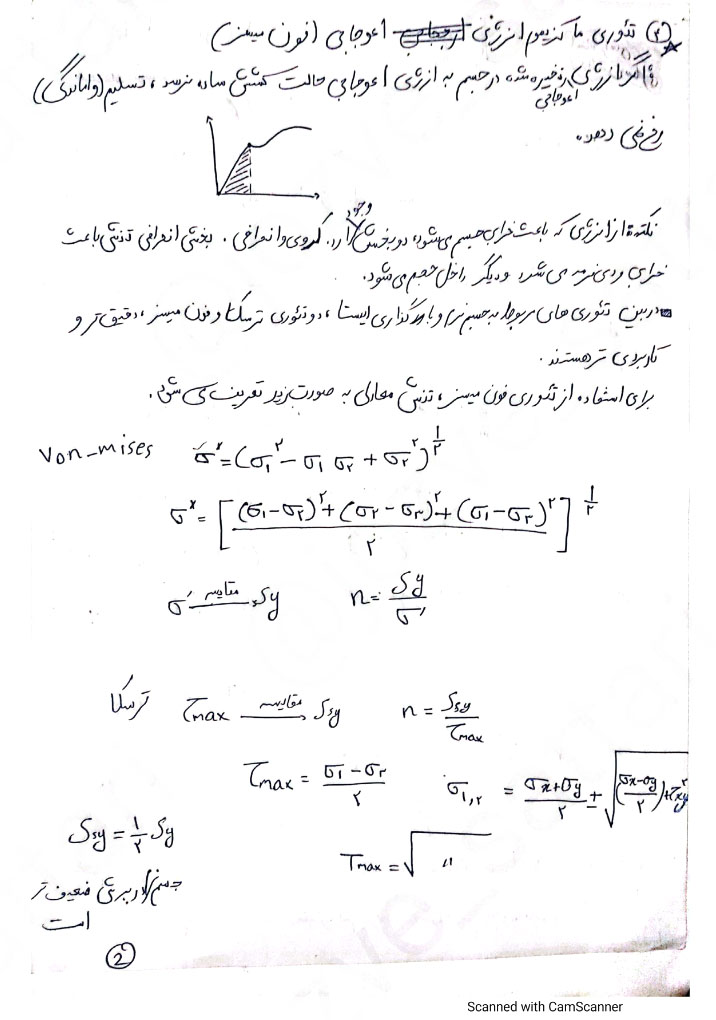 ۲) تئوری ماکزیمم انرژی اعوجاجی (فون میسز)
اگر انرژی اعوجاجی ذخیره شده در جسم به انرژی اعوجاجی حالت کشش ساده برسد، تسلیم (واماندگی)
رخ می دهد.
نکته: از انرژی که باعث خرابی جسم می شود، دو بخش وجود دارد. کروی و انحرافی. بخش انحرافی تنش باعث
خرابی ماده نرم می شود و دیگر داخل حجم می شود.
در بین تئوری های مربوط به جسم نرم و بارگذاری ایستا، دو تئوری ترسکا و فون میسز، دقیق تر و
کاربردی تر هستند.
برای استفاده از تئوری فون میسز، تنش معادل به صورت زیر تعریف می شود.
Von-mises σ* = (σ₁^۲ - σ₁ σ۲ + σ۲^۲)^{۱/۲}
σ* = [((σ₁-σ۲)^۲ + (σ۲-σ۳)^۲ + (σ₁-σ۳)^۲)/۲]^{۱/۲}
σ' مقایسه Sy n = Sy/σ'
ترسکا τmax مقایسه Ssy n = Ssy/τmax
τmax = (σ₁-σ۲)/۲ σ₁,۲ = (σx+σy)/۲ ± √((σx-σy)/۲)^۲+τxy^۲
Ssy = ۱/۲ Sy
τmax = √ "
جسم در برش ضعیف تر
است
2
Scanned with CamScanner